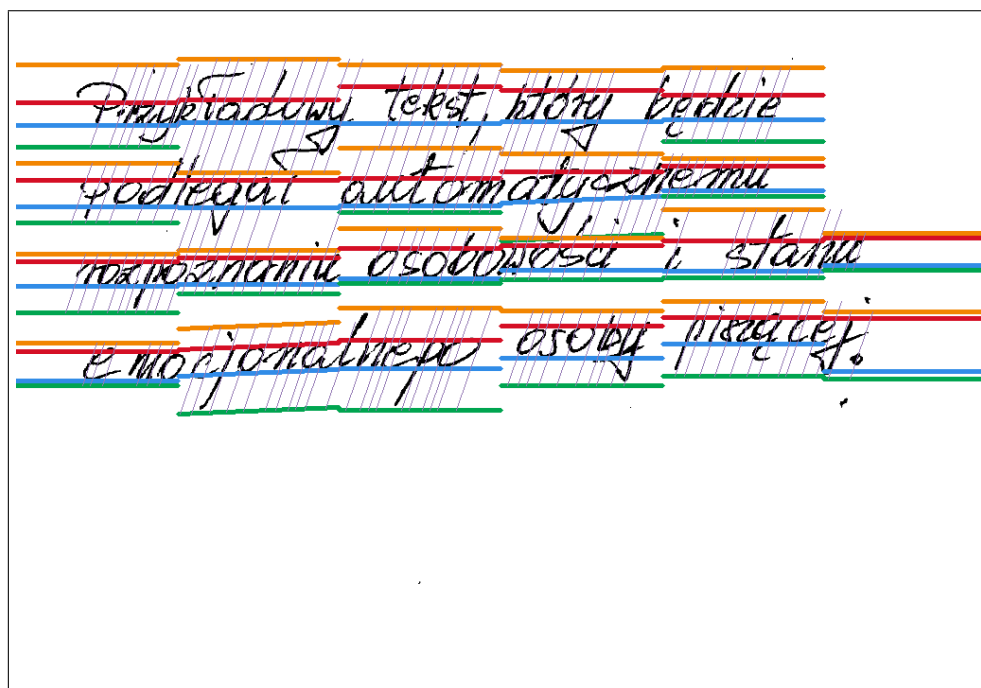 Przykładowy tekst, który będzie
podlegać automatycznemu
rozpoznaniu osobowości i stanu
emocjonalnego osoby piszącej.